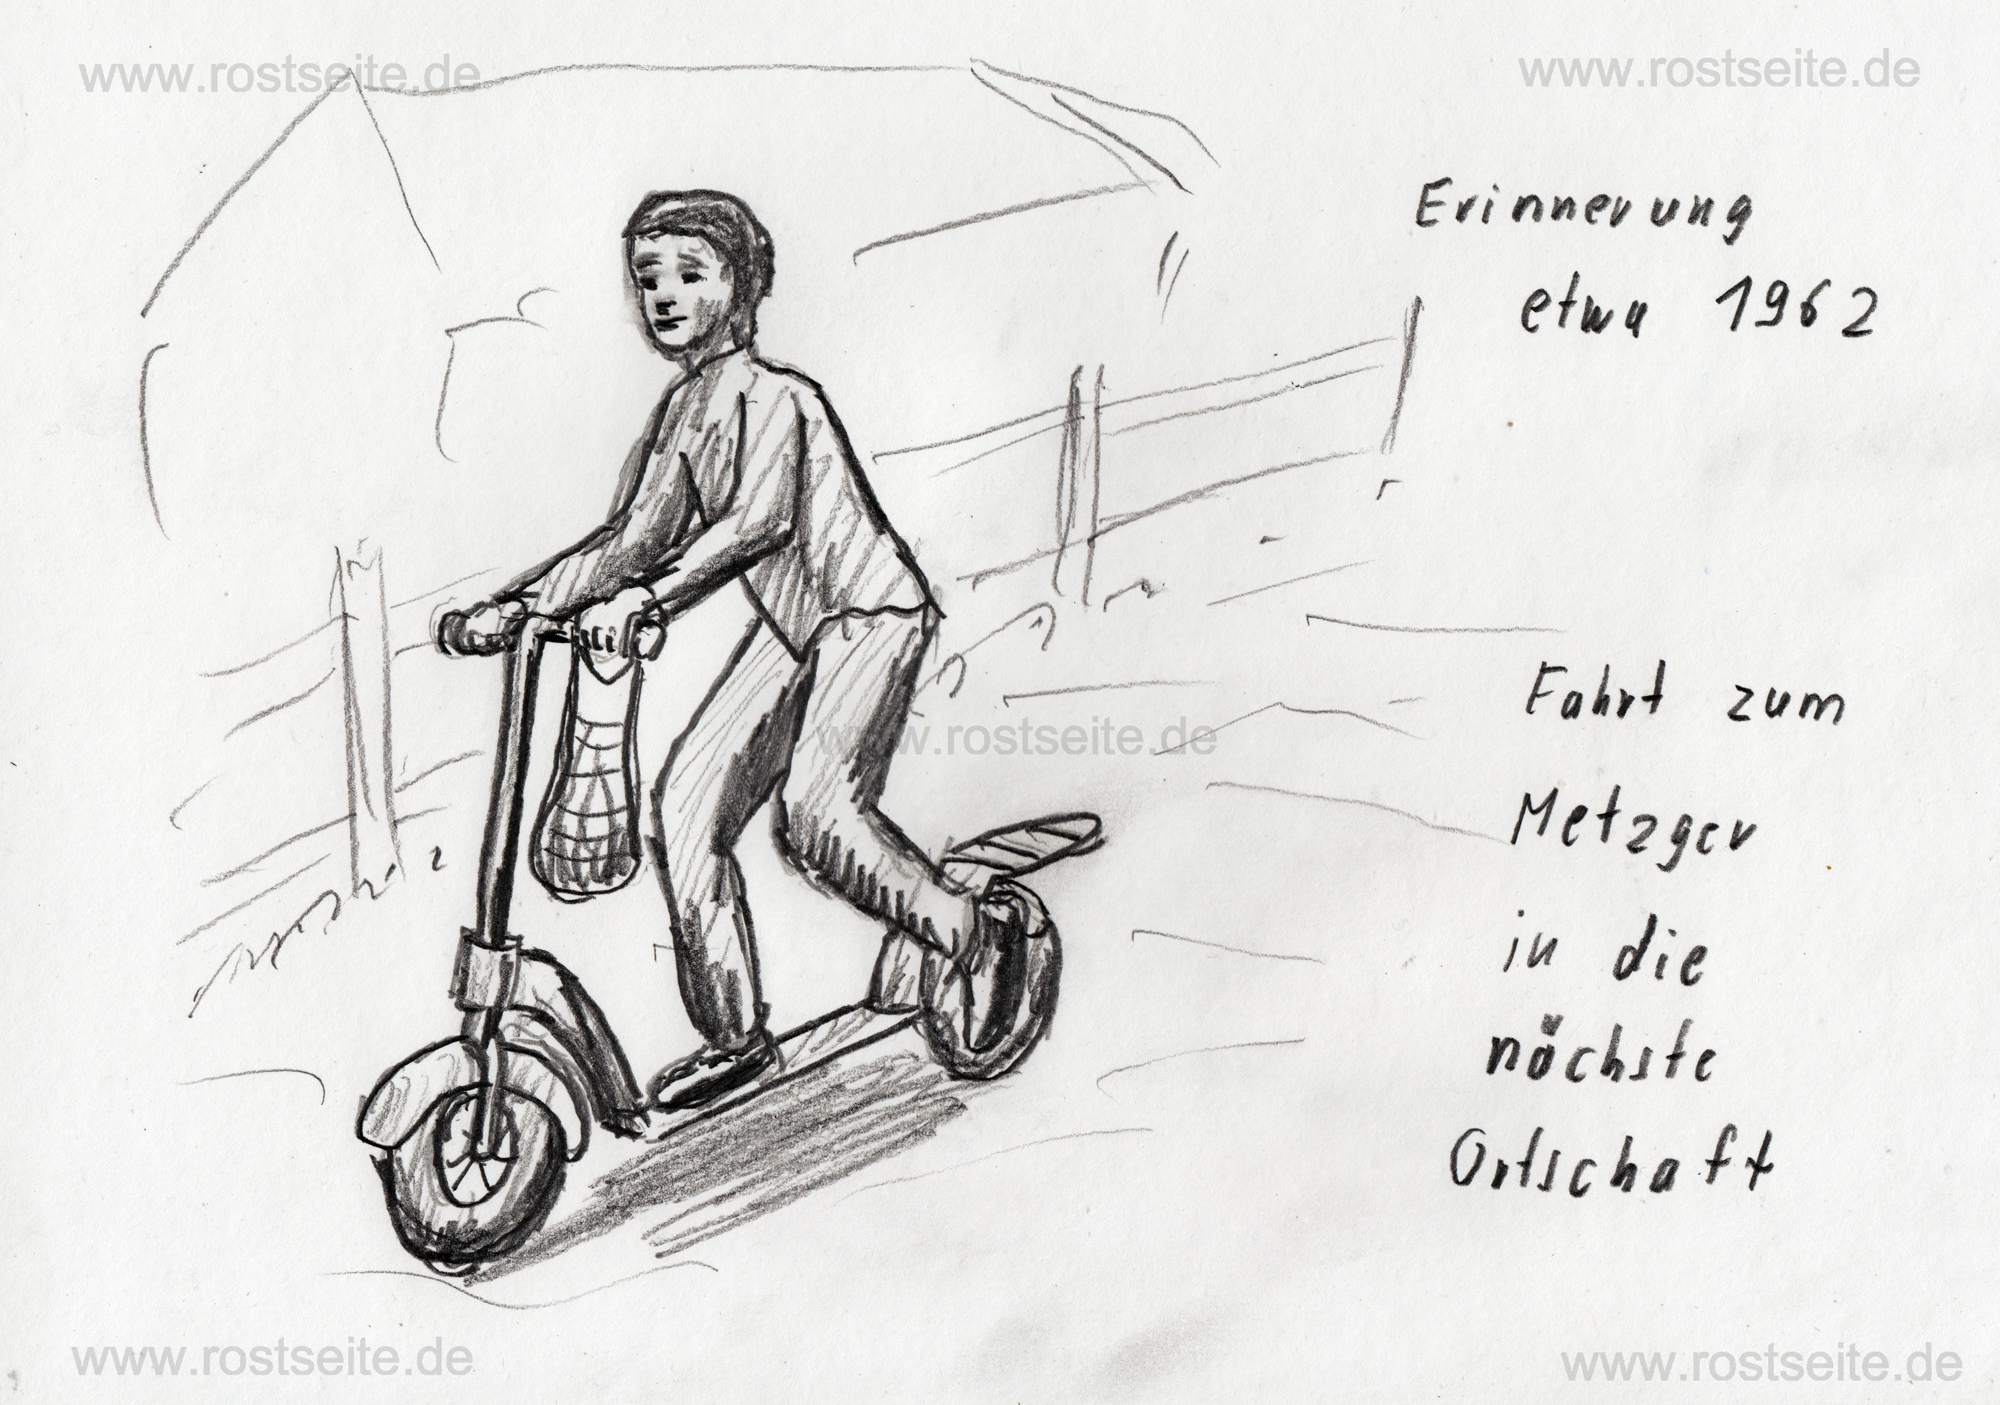 www.rostseite.de
www.rostseite.de
Erinnerung
etwa 1962
Fahrt zum
www.rostseite.de
Metzger
in die
nächste
Ortschaft
www.rostseite.de
www.rostseite.de